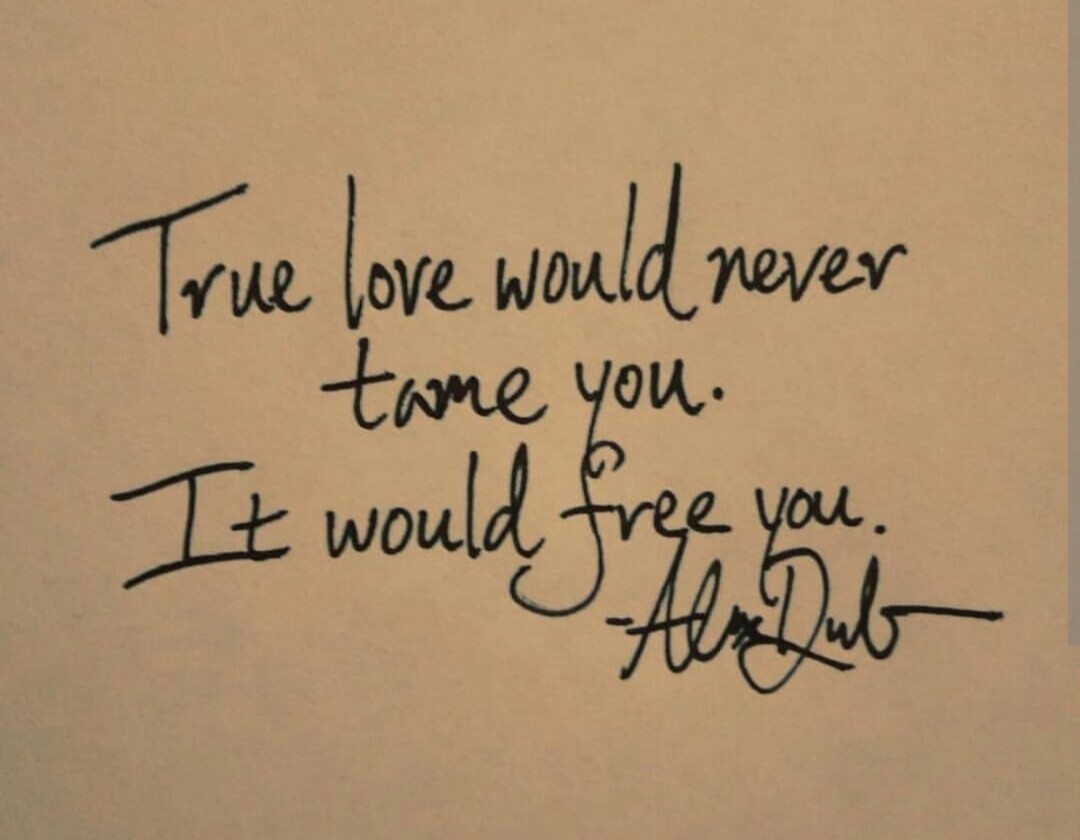 True love would never
tame you.
It would free you.
- Alex Dub